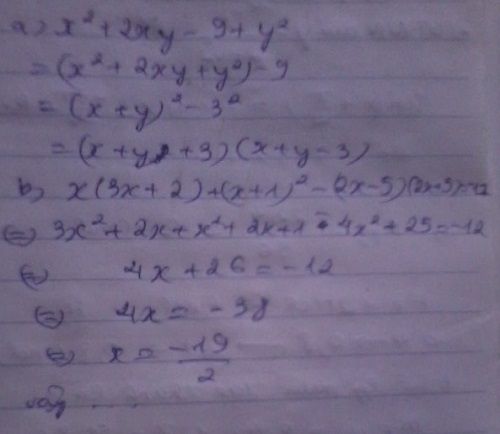 a) x² + 2xy - 9 + y²
= (x² + 2xy + y²) - 9
= (x + y)² - 3²
= (x + y + 3) (x + y - 3)
b) x(3x + 2) + (x + 1)² - (2x - 5)(2x + 5) = -12
⇔ 3x² + 2x + x² + 2x + 1 - 4x² + 25 = -12
⇔ 4x + 26 = -12
⇔ 4x = -38
⇔ x = -19/2
Vậy ....